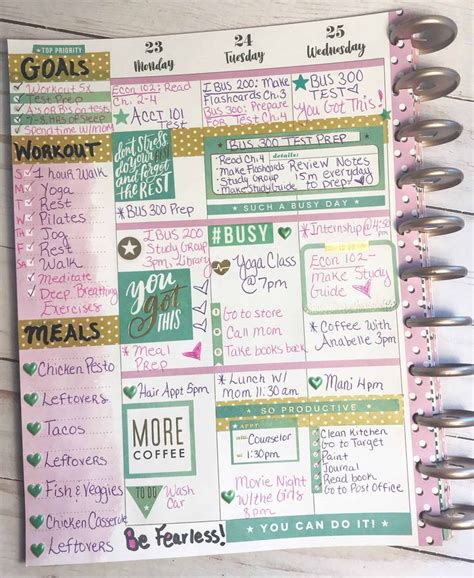 TOP PRIORITY
GOALS
Workout 5x
Test Prep
A or B's on tests
7-8 Hrs of Sleep
Spend time w/mom
WORKOUT
S 1 hour Walk
M Yoga
T Rest
W Pilates
T Jog
F Rest
S Walk
Meditate
Deep Breathing
Exercises
MEALS
Chicken Pesto
Leftovers
Tacos
Leftovers
Fish & Veggies
Chicken Casserole
Leftovers
23
Monday
Econ 102: Read
Ch. 2-4
ACCT 101
Test
don't stress
do your best
and forget
the REST
*BUS 300 Prep
BUS 200
Study Group
3pm, Library
you
got
THIS
*Meal
Prep
Hair Appt 5pm
MORE
COFFEE
TO DO
Wash
Car
Be Fearless!
24
Tuesday
BUS 200: Make
Flashcards Ch. 3
BUS 300: Prepare
For TEST
BUS 300 TEST PREP
details:
Read Ch. 4
Make Flashcards
Study Group
Make Study Guide
Review Notes
15m everyday
to prep
SUCH A BUSY DAY
#BUSY
Yoga Class
@7pm
Go to store
Call Mom
Take books back
*Lunch W/
Mom 11:30 am
SO PRODUCTIVE
APPT
Counselor
1:30pm
Movie Night
W/the Girls
8pm
25
Wednesday
BUS 300
TEST
You Got This!
*Internship @4:50
pm
Econ 102-
Make Study
Guide
*Coffee With
Anabelle 3pm
Mani 4pm
Clean Kitchen
Go to Target
Paint
Journal
Read book
Go to Post Office
YOU CAN DO IT!